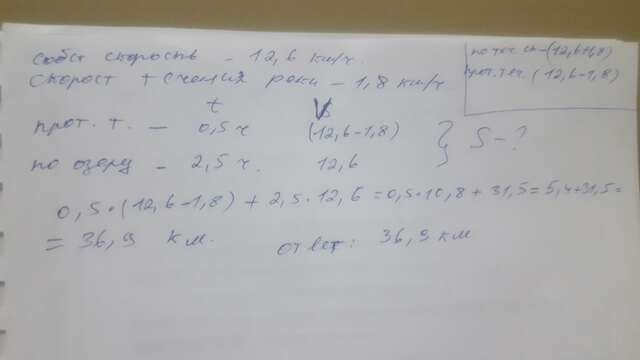 собст скорость - 12,6 км/ч.
скорост течения реки - 1,8 км/ч
по теч. ск - (12,6+1,8)
прот. теч. (12,6-1,8)
t V
прот. т. - 0,5 ч (12,6-1,8)
по озеру - 2,5 ч. 12,6
} S - ?
0,5·(12,6-1,8) + 2,5·12,6 = 0,5·10,8 + 31,5 = 5,4+31,5=
= 36,9 км.
ответ: 36,9 км